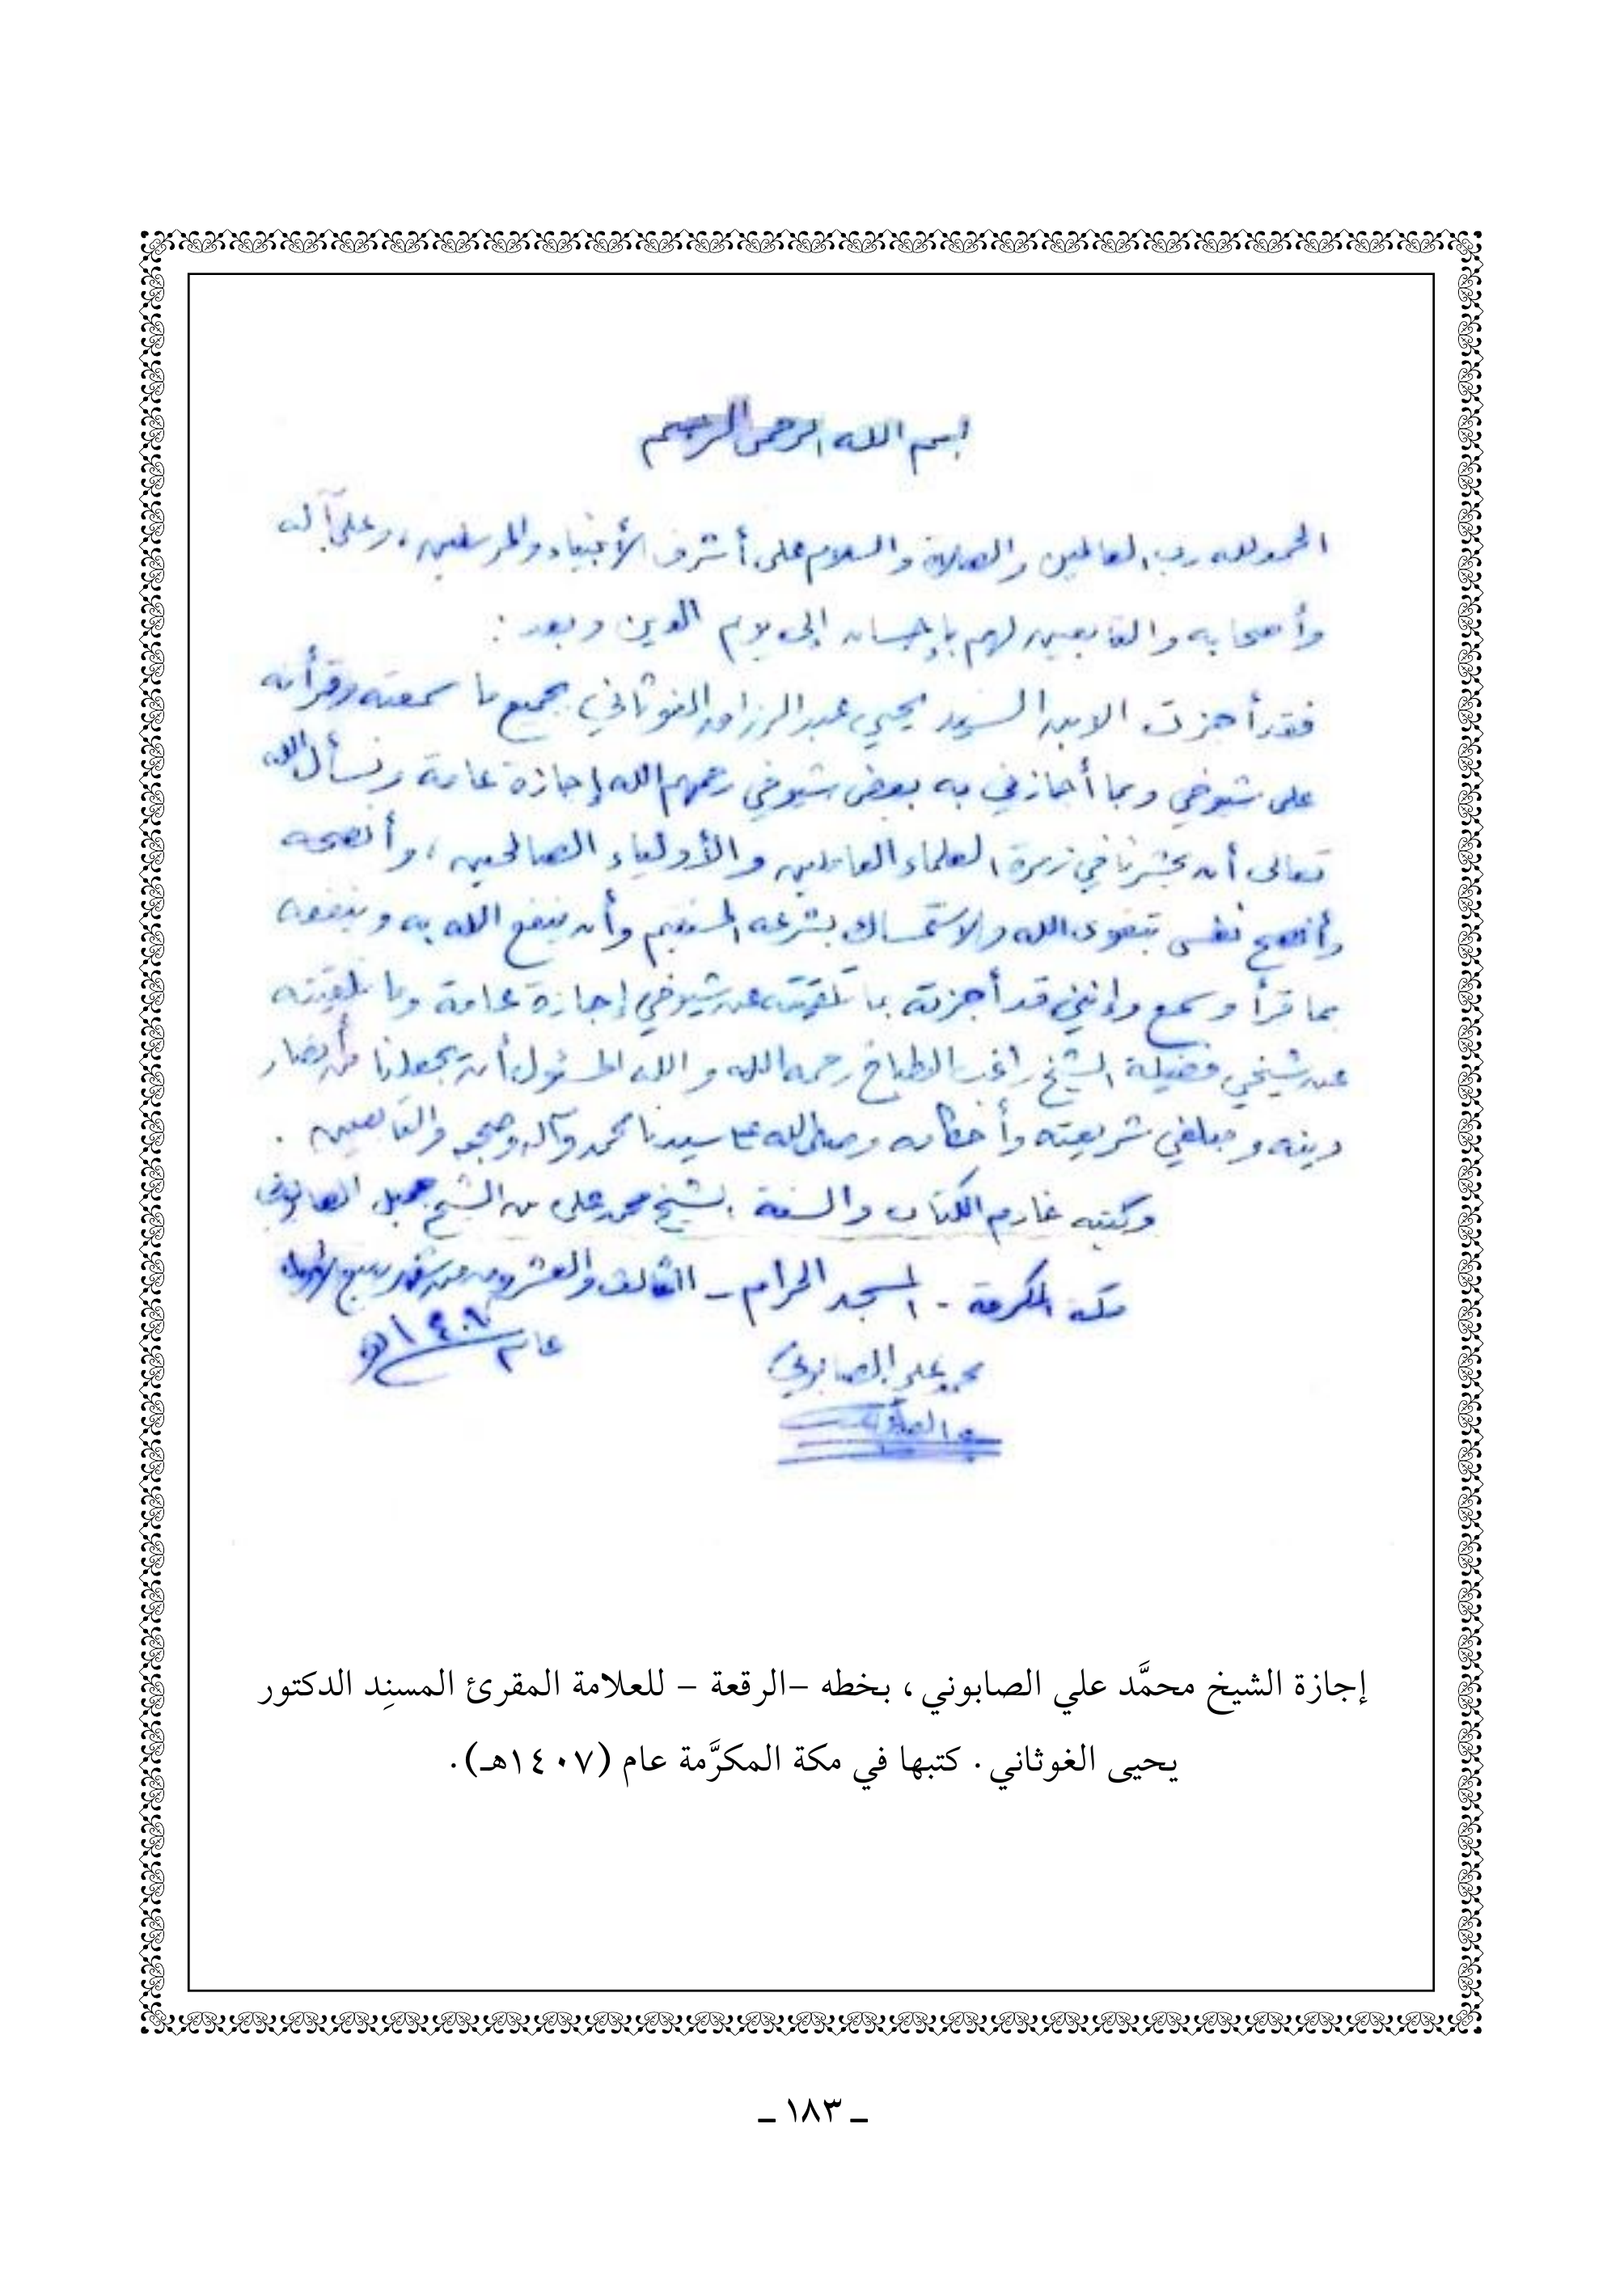 بسم الله الرحمن الرحيم
الحمد لله رب العالمين والصلاة والسلام على أشرف الأنبياء والمرسلين، وعلى آله
وأصحابه والتابعين لهم بإحسان إلى يوم الدين وبعد :
فقد أجزت الابن السيد يحيى عبد الرزاق الغوثاني بجميع ما سمعته وقرأته
على شيوخي وبما أجازني به بعض شيوخي رحمهم الله إجازة عامة ونسأل الله
تعالى أن يحشرنا في زمرة العلماء العاملين والأولياء الصالحين، وأنصحه
وأنصح نفسي بتقوى الله والاستمساك بشرعه المستقيم وأن ينفع الله به وينفعه
بما قرأ وسمع وإنني قد أجزته بما تلقيته عن شيوخي إجازة عامة وما تلقيته
عن شيخي فضيلة الشيخ راغب الطباخ رحمه الله والله المسئول أن يجعلنا من أنصار
دينه ومبلغي شريعته وأحكامه وصلى الله على سيدنا محمد وآله وصحبه والتابعين .
وكتبه خادم الكتاب والسنة الشيخ محمد علي بن الشيخ جميل الصابوني
مكة المكرمة - المسجد الحرام - الثالث والعشرون من شهر ربيع الأول
عام ١٤٠٧هـ
محمد علي الصابوني
إجازة الشيخ محمَّد علي الصابوني، بخطه –الرقعة – للعلامة المقرئ المسنِد الدكتور
يحيى الغوثاني. كتبها في مكة المكرَّمة عام (١٤٠٧هـ).
ـ ١٨٣ ـ